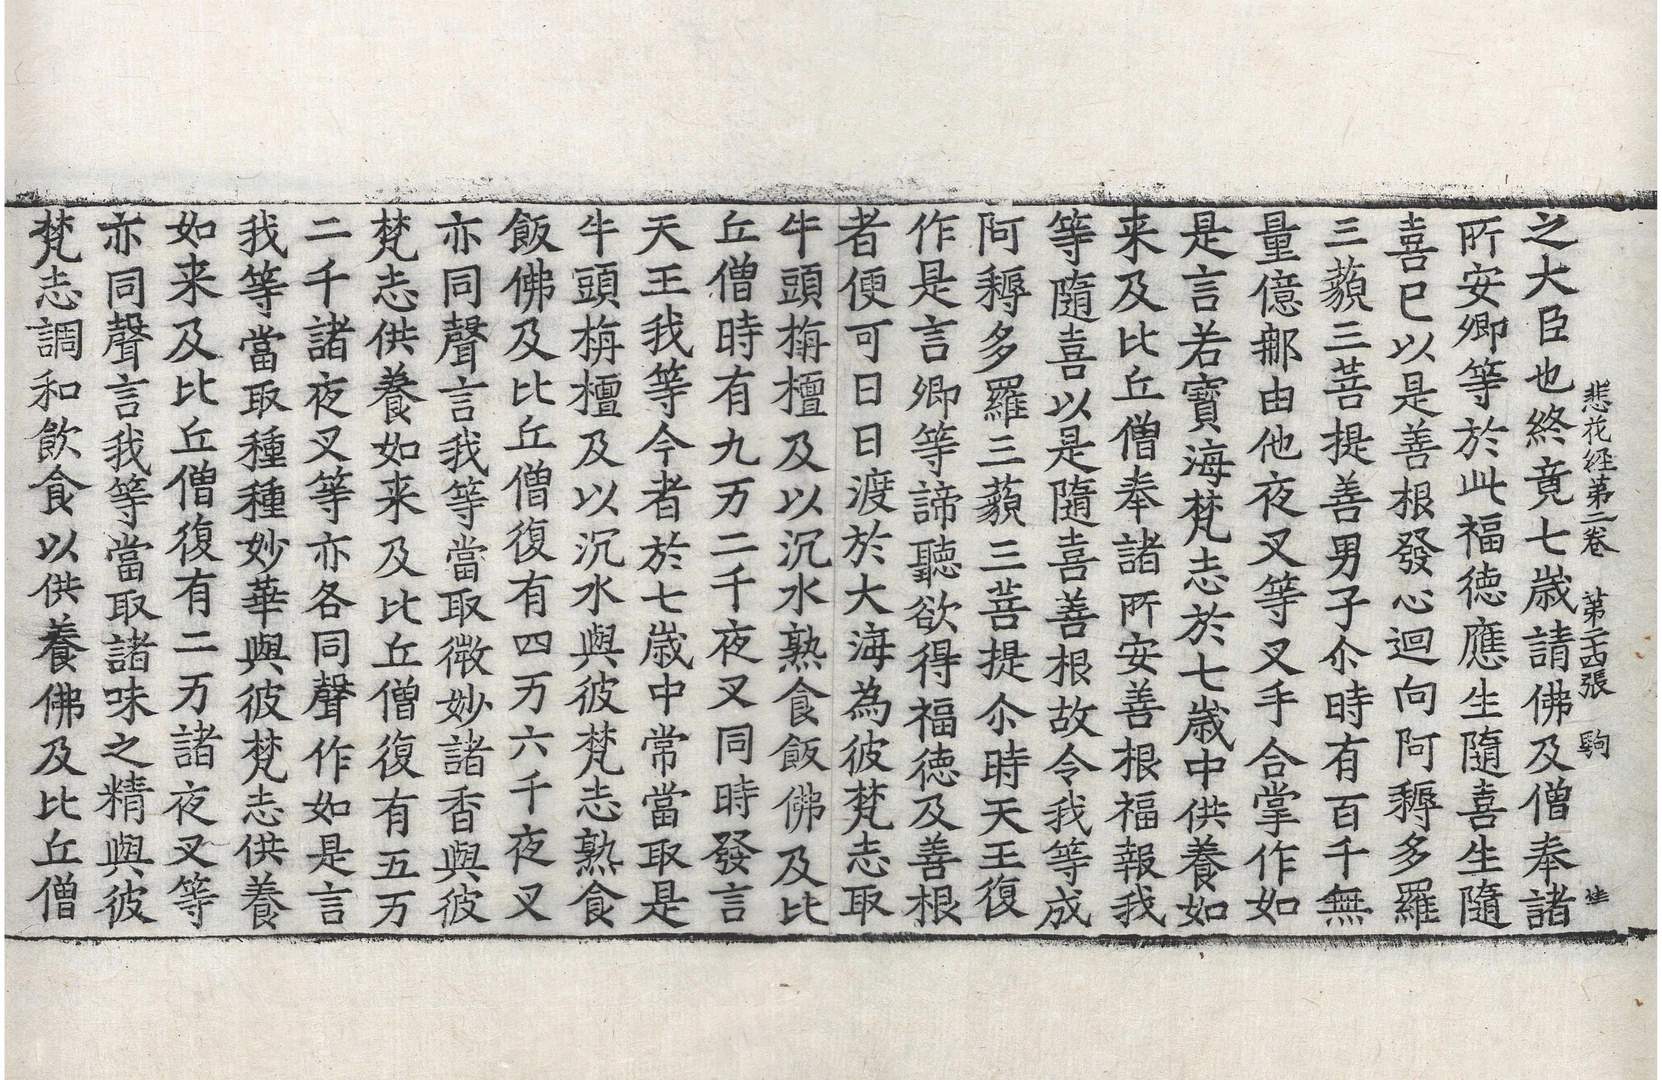 悲花経第二卷 第二十四張 駒
之大臣也終竟七歳請佛及僧奉諸
所安卿等於此福徳應生隨喜生隨
喜已以是善根發心迴向阿耨多羅
三藐三菩提善男子尒時有百千無
量億那由他夜叉等叉手合掌作如
是言若寶海梵志於七歳中供養如
来及比丘僧奉諸所安善根福報我
等隨喜以是隨喜善根故令我等成
阿耨多羅三藐三菩提尒時天王復
作是言卿等諦聽欲得福徳及善根
者便可日日渡於大海為彼梵志取
牛頭栴檀及以沉水熟食飯佛及比
丘僧時有九万二千夜叉同時發言
天王我等今者於七歳中常當取是
牛頭栴檀及以沉水與彼梵志熟食
飯佛及比丘僧復有四万六千夜叉
亦同聲言我等當取微妙諸香與彼
梵志供養如来及比丘僧復有五万
二千諸夜叉等亦各同聲作如是言
我等當取種種妙華與彼梵志供養
如来及比丘僧復有二万諸夜叉等
亦同聲言我等當取諸味之精與彼
梵志調和飲食以供養佛及比丘僧